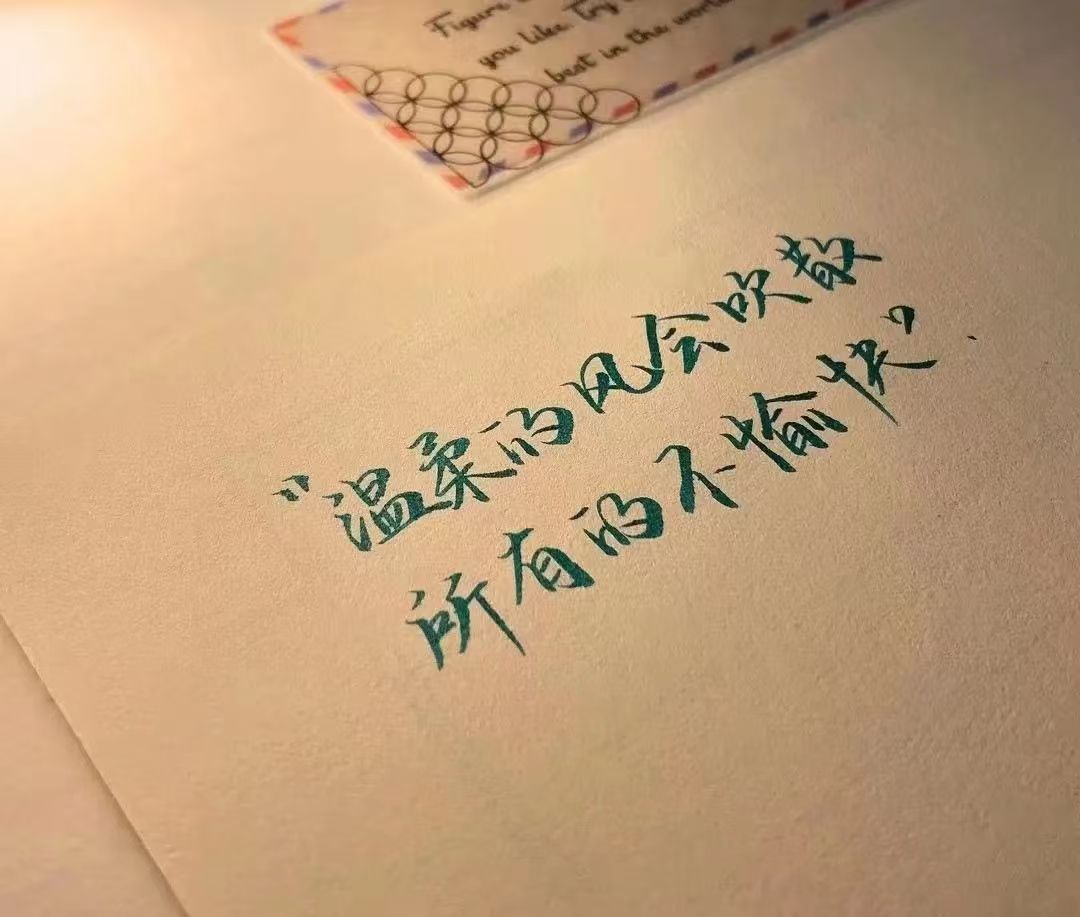 Figure
you like Try
best in the world
“温柔的风会吹散
所有的不愉快”